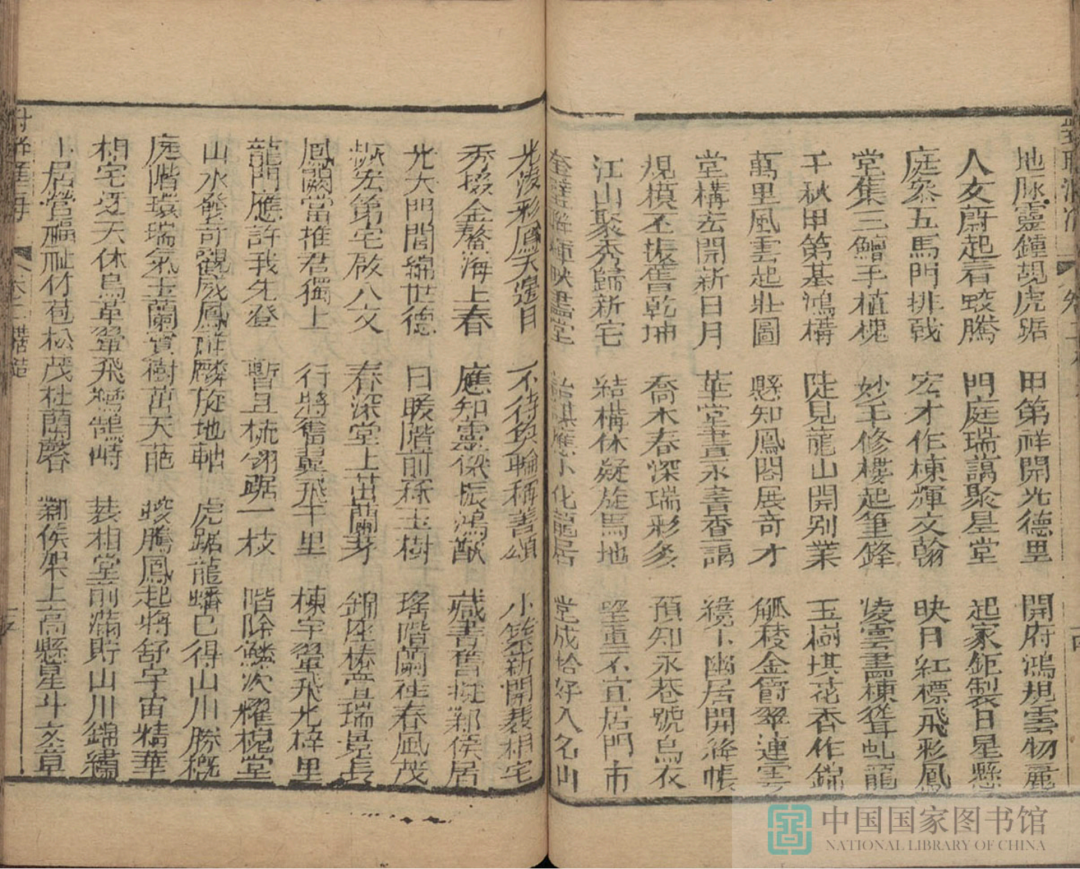 地脉靈鍾親虎踞 甲第祥開光德里 開府鴻規雲物麗
人文蔚起看蛟騰 門庭瑞藹聚星堂 起家鉅製日星懸
庭參五馬門排戟 宏才作棟輝文翰 映日紅標飛彩鳳
堂集三鱣手植槐 妙手修樓起筆鋒 凌雲畫棟聳虬龍
千秋甲第基鴻構 陡見龍山開別業 玉樹琪花香作錦
萬里風雲起壯圖 懸知鳳閣展奇才 觚稜金霄翠連雲
堂構宏開新日月 華堂晝永書香藹 繞卜幽居開絳帳
規模丕振舊乾坤 喬木春深瑞彩多 預知永巷號烏衣
江山聚秀歸新宅 結構休凝旋馬地 望重不宜居門市
奎璧 映畫堂 詒謀應小化龍居 堂成恰好入名山
光凌彩鳳天邊日 不待奐輪稱善頌 小築新開裴相宅
秀掇金鰲海上春 應知靈傑振鴻猷 藏書舊在鄴侯居
光大門閭綿世德 日暖階前秀玉樹 瑤階蘭桂春風茂
恢宏第宅啟人文 春深堂上茁蘭芽 錦座椿萱瑞景長
鳳闕當推君獨上 行將奮翼飛千里 棟宇翬飛光梓里
龍門應許我先登 暫且梳翎踞一枝 階除鱗次耀槐堂
山水發奇觀威鳳祥麟旋地軸 虎踞龍蟠已得山川勝概
庭階環瑞氣玉蘭寶樹茁天葩 蛟騰鳳起將舒宇宙精華
相宅受天休鳥革翬飛鸞鵠峙 裴相堂前滿貯山川錦繡
卜居營福祉竹苞松茂杜蘭馨 鄴侯架上高懸星斗文章
中国国家图书馆
NATIONAL LIBRARY OF CHINA